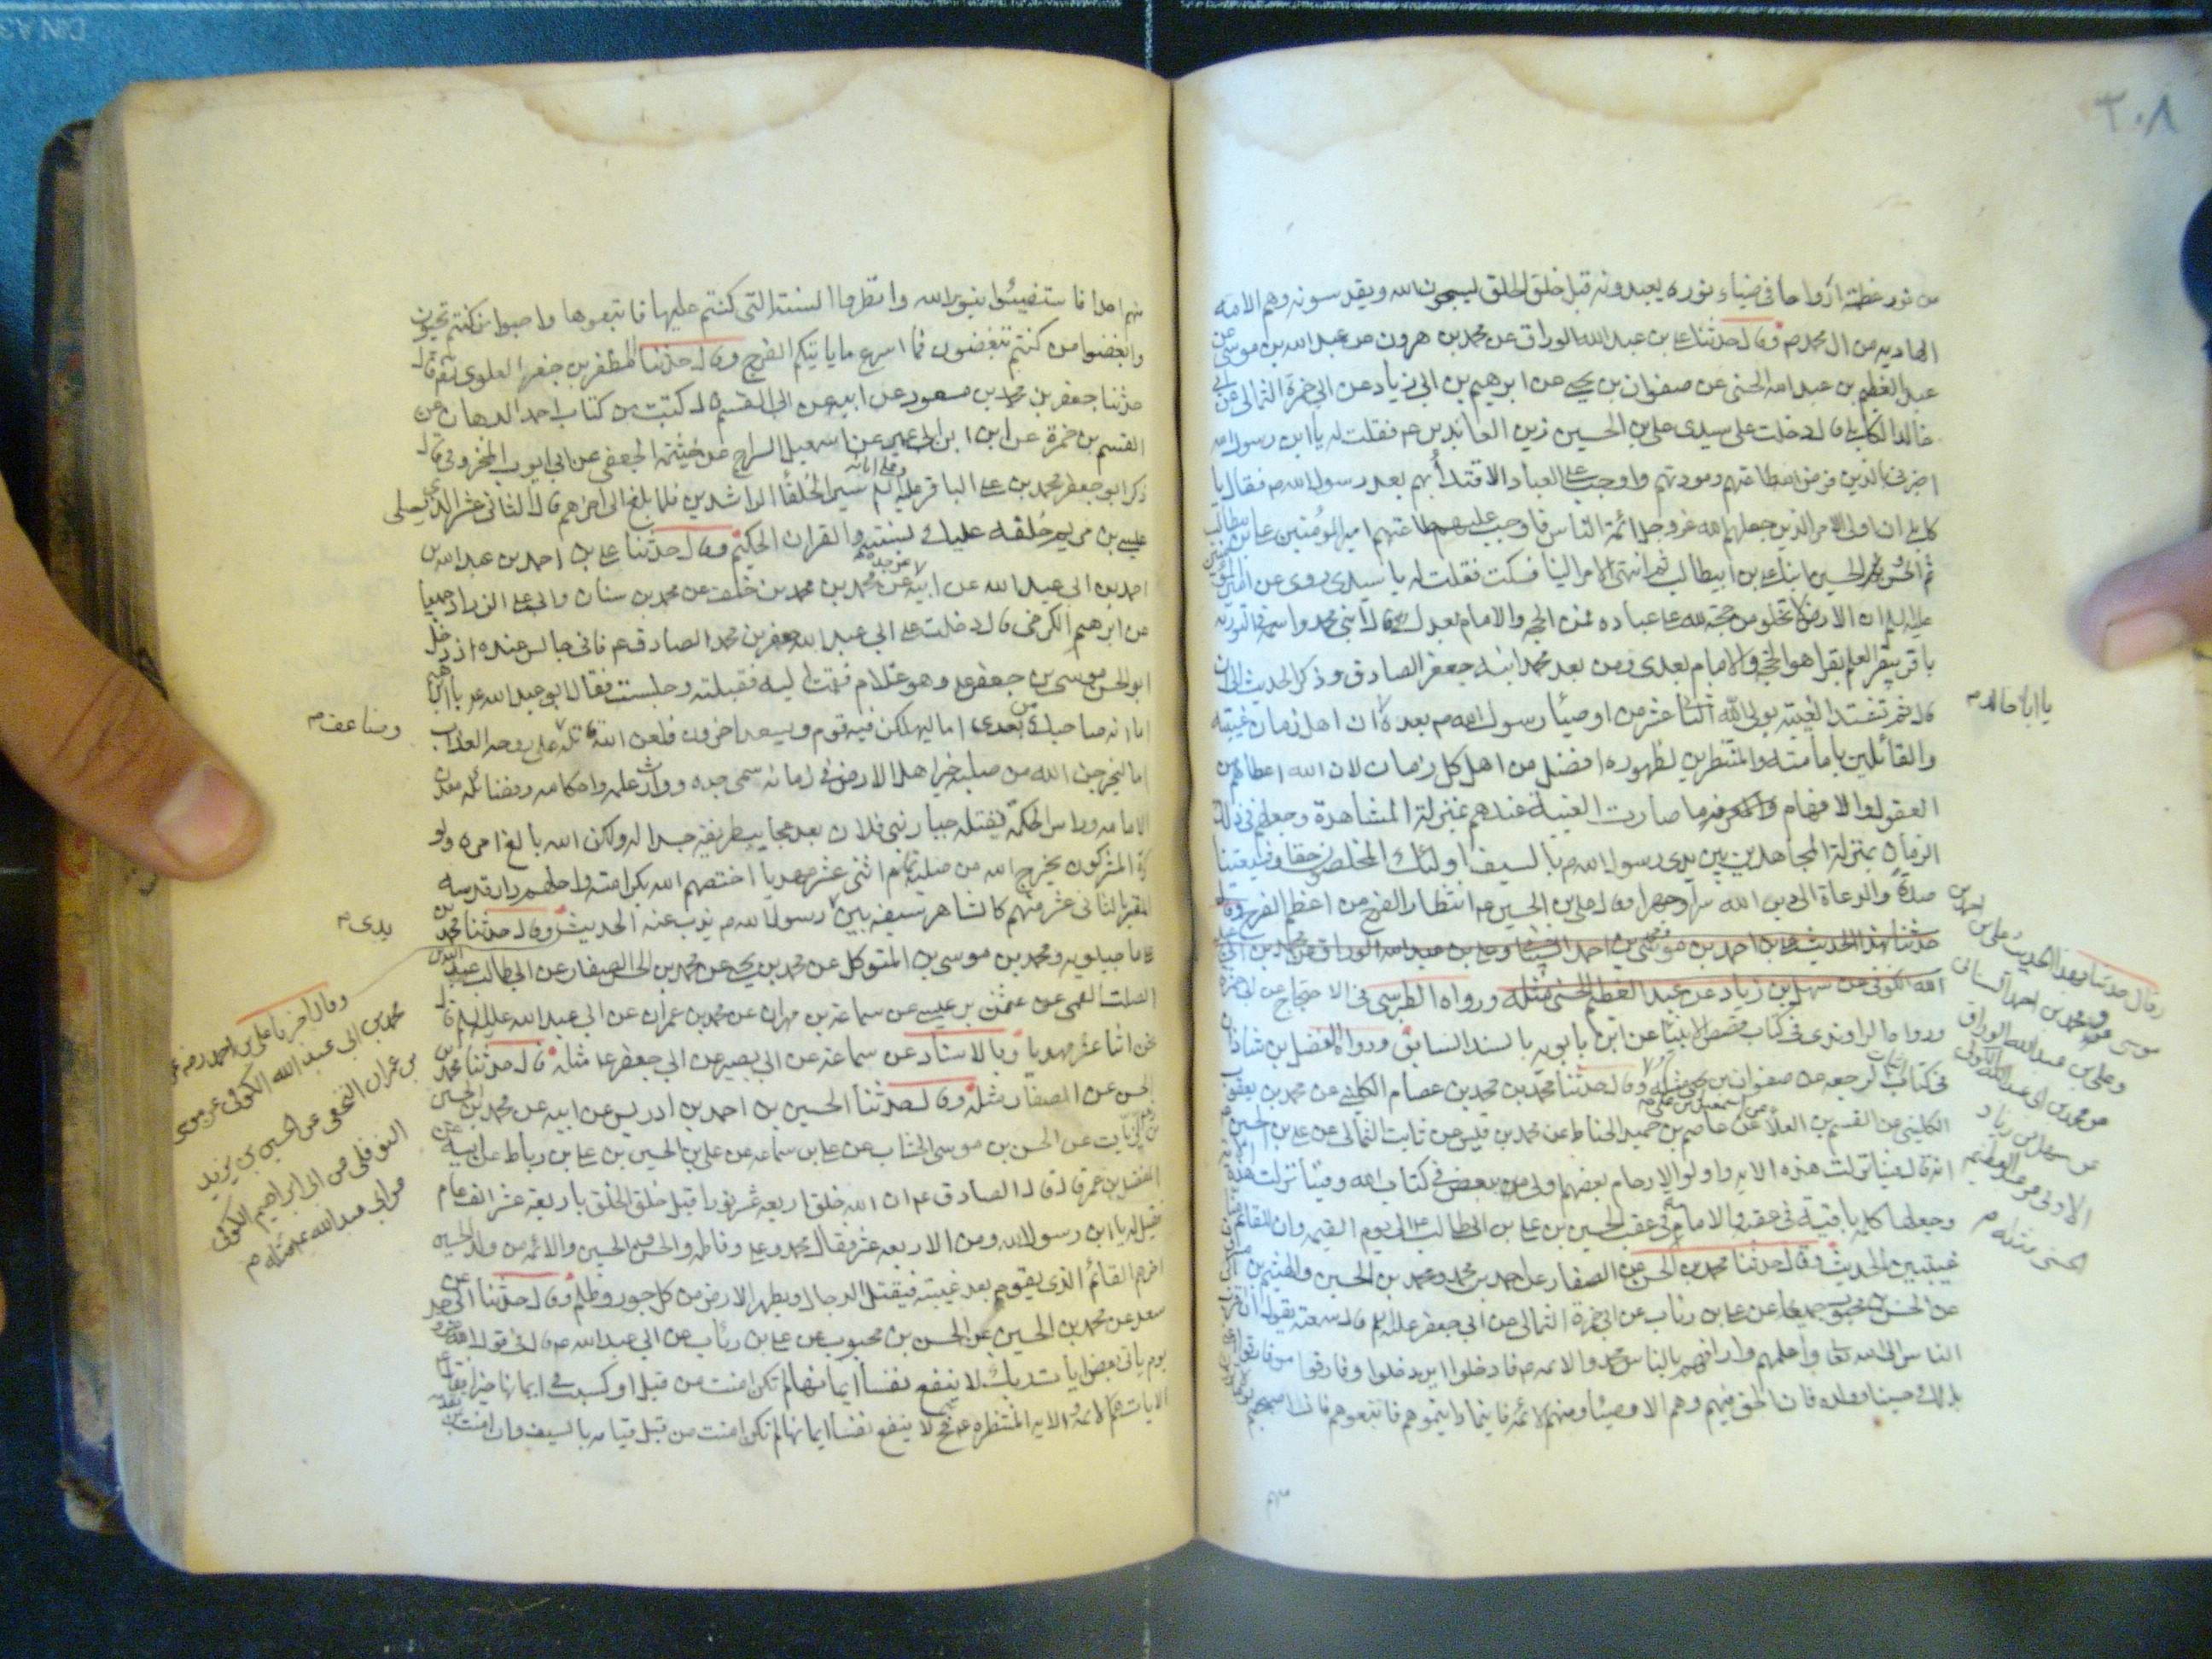 ٢٠٨
من نور عظمته ارواحا في ضياء نوره يعبدونه قبل خلق الخلق يسبحون الله ويقدسونه وهم الائمه
الهاديه من ال محمد ص وقال حدثنا علي بن عبد الله الوراق عن محمد بن هرون عن عبد الله بن موسى عن
عبد العظيم بن عبد الله الحسني عن صفوان بن يحيى عن ابرهيم بن ابي زياد عن ابي حمزة الثمالي عن ابي
خالد الكابلي قال دخلت على سيدي علي بن الحسين زين العابدين ع فقلت له يا ابن رسول الله
اخبرني بالذين فرض الله طاعتهم ومودتهم واوجب على العباد الاقتداء بهم بعد رسول الله ص فقال يا
كابلي ان اولى الامر الذين جعلهم الله عز وجل ائمة الناس فاوجب عليهم طاعتهم امير المؤمنين علي بن ابيطالب
ثم الحسن ثم الحسين ابنا علي بن ابيطالب ثم انتهى الامر الينا فسكت فقلت له يا سيدي روى عن امير المؤمنين
عليه السلم ان الارض لا تخلو من حجة لله على عباده فمن الحجه والامام بعدك قال ابني محمد واسمه في التوريه
باقر يبقر العلم بقرا هو الحجه والامام بعدي ومن بعد محمد ابنه جعفر الصادق وذكر الحديث الى ان
قال ثم تمتد الغيبه بولي الله الثاني عشر من اوصياء رسول الله ص بعده ان اهل زمان غيبته
يا ابا خالد م
والقائلين بامامته والمنتظرين لظهوره افضل من اهل كل زمان لان الله اعطاهم من
العقول والافهام والمعرفه ما صارت الغيبة عندهم بمنزلة المشاهدة وجعلهم في ذلك
الزمان بمنزلة المجاهدين بين يدي رسول الله ص بالسيف اولئك المخلصون حقا وشيعتنا
صدقا والدعاة الى دين الله سرا وجهرا وقال علي بن الحسين ع انتظار الفرج من اعظم الفرج وقال
حدثنا بهذا الحديث علي بن احمد بن موسى ومحمد بن احمد السناني وعلي بن عبد الله الوراق عن محمد بن ابي
عبد الله الكوفي عن سهل بن زياد عن عبد العظيم الحسني مثله ورواه الطبرسي في الاحتجاج عن ابي حمزة
ورواه الراوندي في كتاب قصص الانبياء عن ابن بابويه بالسند السابق ورواه الفضل بن شاذان
في كتاب اثبات الرجعه عن صفوان بن يحيى مثله وقال حدثنا محمد بن محمد بن عصام الكليني عن محمد بن يعقوب
الكليني عن القسم بن العلاء عن اسمعيل بن علي عن عاصم بن حميد الحناط عن محمد بن قيس عن ثابت الثمالي عن علي بن الحسين
انه قال فينا نزلت هذه الايه واولوا الارحام بعضهم اولى ببعض في كتاب الله وفينا نزلت هذه
وجعلها كلمة باقية في عقبه والامامة في عقب الحسين بن علي بن ابي طالب ع الى يوم القيمه وان للقائم منا
غيبتين الحديث وقال حدثنا محمد بن الحسن عن الصفار عن احمد بن محمد ومحمد بن الحسين والهيثم بن
عن الحسن بن محبوب جميعا عن علي بن رئاب عن ابي حمزة الثمالي عن ابي جعفر عليه السلم قال سمعته يقول ان اقرب
الناس الى الله تعالى واعلمهم وارافهم بالناس محمد والائمه ص فادخلوا اين دخلوا وفارقوا من فارقوا
بذلك حسينا وولده فان الحق فيهم وهم الاوصياء ومنهم الائمه فاينما رايتموهم فاتبعوهم فان اصبحتم
منهم
وقال حدثنا بهذا الحديث علي بن احمد بن
موسى ومحمد بن احمد السناني
وعلي بن عبد الله الوراق
عن محمد بن ابي عبد الله الكوفي
عن سهل بن زياد
الادمي عن عبد العظيم
الحسني مثله م
منهم احدا فاستضيئوا بنور الله وانظروا السنة التي كنتم عليها فاتبعوها واحبوا من كنتم تحبون
وابغضوا من كنتم تبغضون فما اسرع ما ياتيكم الفرج وقال حدثنا المظفر بن جعفر العلوي قال
حدثنا جعفر بن محمد بن مسعود عن ابيه عن ابي القسم قال كتبت من كتاب احمد الدهان عن
القسم بن حمزة عن ابن ابي عمير عن اسمعيل السراج عن خيثمة الجعفي عن ابي ايوب المخزومي قال
ذكر ابو جعفر محمد بن علي الباقر عليه السلم سير الخلفاء الراشدين فلما بلغ الى اخرهم قال الثاني عشر الذي يصلي
عيسى بن مريم خلفه عليك بسنته والقران الحكيم وقال حدثنا علي بن احمد بن عبد الله بن
احمد بن ابي عبد الله عن ابيه عن جده عن محمد بن خلف عن محمد بن سنان وابي علي الزراد جميعا
عن ابرهيم الكرخي قال دخلت على ابي عبد الله جعفر بن محمد الصادق ع فاني جالس عنده اذ دخل
ابو الحسن موسى بن جعفر ع وهو غلام فقمت اليه فقبلته وجلست فقال ابو عبد الله ع يا ابرهيم
اما انه صاحبك من بعدي اما ليهلكن فيه قوم ويسعد اخرون فلعن الله قاتله وضاعف على روحه العذاب
وضاعف م
اما ليخرجن الله من صلبه خير اهل الارض في زمانه سمي جده ووارث علمه واحكامه وفضائله معدن
الامامه وراس الحكمة يقتله جبار بني فلان بعد عجايب طريفه حسدا له ولكن الله بالغ امره ولو
كره المشركون يخرج الله من صلبه تمام اثنى عشر مهديا اختصهم الله بكرامته واحلهم دار قدسه
المقر بالثاني عشر منهم كالشاهر سيفه بين رسول الله ص يذب عنه الحديث وقال حدثنا محمد بن
يدي م
علي ماجيلويه ومحمد بن موسى بن المتوكل عن محمد بن يحيى عن محمد بن الحسن الصفار عن ابي طالب عبد الله بن
الصلت القمي عن عثمن بن عيسى عن سماعة بن مهران عن محمد بن عمران عن ابي عبد الله عليه السلم قال
نحن اثنا عشر مهديا وبالاسناد عن سماعة عن ابي بصير عن ابي جعفر ع مثله قال حدثنا محمد بن
الحسن عن الصفار مثله وقال حدثنا الحسين بن احمد بن ادريس عن ابيه عن محمد بن الحسين
بن يزيد الزيات عن الحسن بن موسى الخشاب عن علي بن سماعه عن علي بن الحسين بن علي بن رباط عن ابيه عن
المفضل بن عمر قال قال الصادق ع ان الله خلق اربعه عشر نورا قبل خلق الخلق باربعة عشر الف عام
فقيل له يا ابن رسول الله ومن الاربعه عشر فقال محمد وعلي وفاطمه والحسن والحسين والائمه من ولد الحسين
اخرهم القائم الذي يقوم بعد غيبته فيقتل الدجال ويطهر الارض من كل جور وظلم وقال حدثنا ابي عن
سعد عن محمد بن الحسين عن الحسن بن محبوب عن علي بن رئاب عن ابي عبد الله ع قال في قول الله عز وجل
يوم ياتي بعض ايات ربك لا ينفع نفسا ايمانها لم تكن امنت من قبل او كسبت في ايمانها خيرا فقال
الايات هم الائمه والايه المنتظره هو القائم ع لا ينفع نفسا ايمانها لم تكن امنت من قبل قيامه بالسيف وان امنت بمن
وقال اخبرنا علي بن احمد رضه عن
محمد بن ابي عبد الله الكوفي عن موسى
بن عمران النخعي عن الحسين بن يزيد
النوفلي عن ابي ابراهيم الكوفي
عن ابي عبد الله ع مثله م